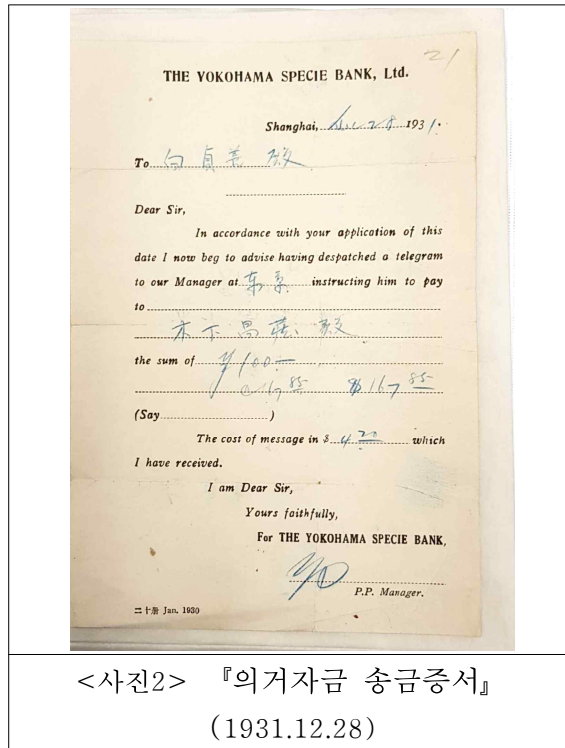 21
THE YOKOHAMA SPECIE BANK, Ltd.
Shanghai, Dec 28 1931.
To 白貞善 殿
Dear Sir,
In accordance with your application of this
date I now beg to advise having despatched a telegram
to our Manager at 东京 instructing him to pay
to
木下昌蔵 殿
the sum of ¥100—
$167 85
(Say )
The cost of message in $ 4 20 which
I have received.
I am Dear Sir,
Yours faithfully,
For THE YOKOHAMA SPECIE BANK,
P.P. Manager.
二十冊 Jan. 1930
<사진2> 『의거자금 송금증서』
(1931.12.28)